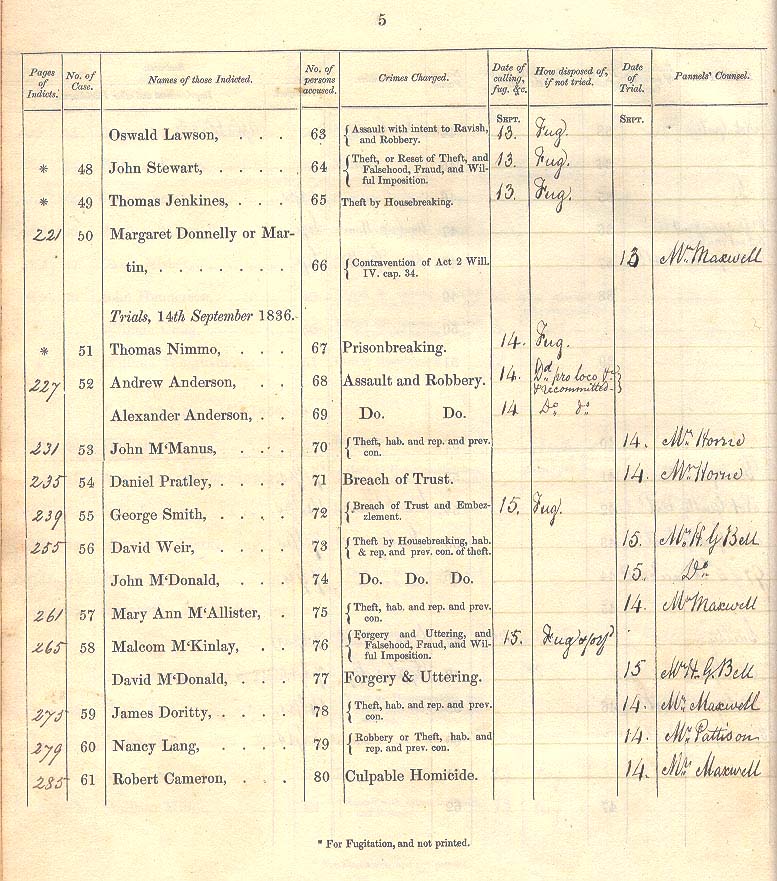 5
Pages of Indicts. No. of Case. Names of those Indicted. No. of persons accused. Crimes Charged. Date of calling, fug. &c. How disposed of, if not tried. Date of Trial. Pannels' Counsel.
SEPT. SEPT.
Oswald Lawson, . . . 63 { Assault with intent to Ravish, and Robbery. 13. Fug.
* 48 John Stewart, . . . . 64 { Theft, or Reset of Theft, and Falsehood, Fraud, and Wilful Imposition. 13. Fug.
* 49 Thomas Jenkines, . . . 65 Theft by Housebreaking. 13 Fug.
221 50 Margaret Donnelly or Mar-
tin, . . . . . . . 66 { Contravention of Act 2 Will. IV. cap. 34. 13 Mr. Maxwell
Trials, 14th September 1836.
* 51 Thomas Nimmo, . . . 67 Prisonbreaking. 14. Fug.
227 52 Andrew Anderson, . . 68 Assault and Robbery. 14. Dd. pro loco & recommitted }
Alexander Anderson, . . 69 Do. Do. 14 Do. do.
231 53 John M'Manus, . . . 70 { Theft, hab. and rep. and prev. con. 14. Mr. Horne
235 54 Daniel Pratley, . . . . 71 Breach of Trust. 14. Mr. Horne
239 55 George Smith, . . . . 72 { Breach of Trust and Embezzlement. 15. Fug.
255 56 David Weir, . . . . 73 { Theft by Housebreaking, hab. & rep. and prev. con. of theft. 15. Mr. H. G. Bell
John M'Donald, . . . . 74 Do. Do. Do. 15. Do.
261 57 Mary Ann M'Allister, . 75 { Theft, hab. and rep. and prev. con. 14. Mr Maxwell
265 58 Malcom M'Kinlay, . . 76 { Forgery and Uttering, and Falsehood, Fraud, and Wilful Imposition. 15. Fug
David M'Donald, . . . 77 Forgery & Uttering. 15 Mr H. G. Bell
275 59 James Doritty, . . . . 78 { Theft, hab. and rep. and prev. con. 14. Mr. Maxwell
279 60 Nancy Lang, . . . . 79 { Robbery or Theft, hab. and rep. and prev. con. 14. Mr. Pattison
285 61 Robert Cameron, . . . 80 Culpable Homicide. 14. Mr. Maxwell
* For Fugitation, and not printed.